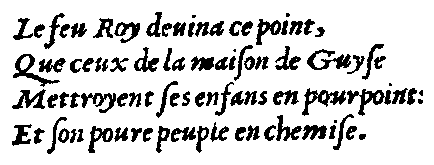 Le feu Roy deuina ce point,
Que ceux de la maiſon de Guyſe
Mettroyent ſes enfans en pourpoint:
Et ſon poure peuple en chemiſe.